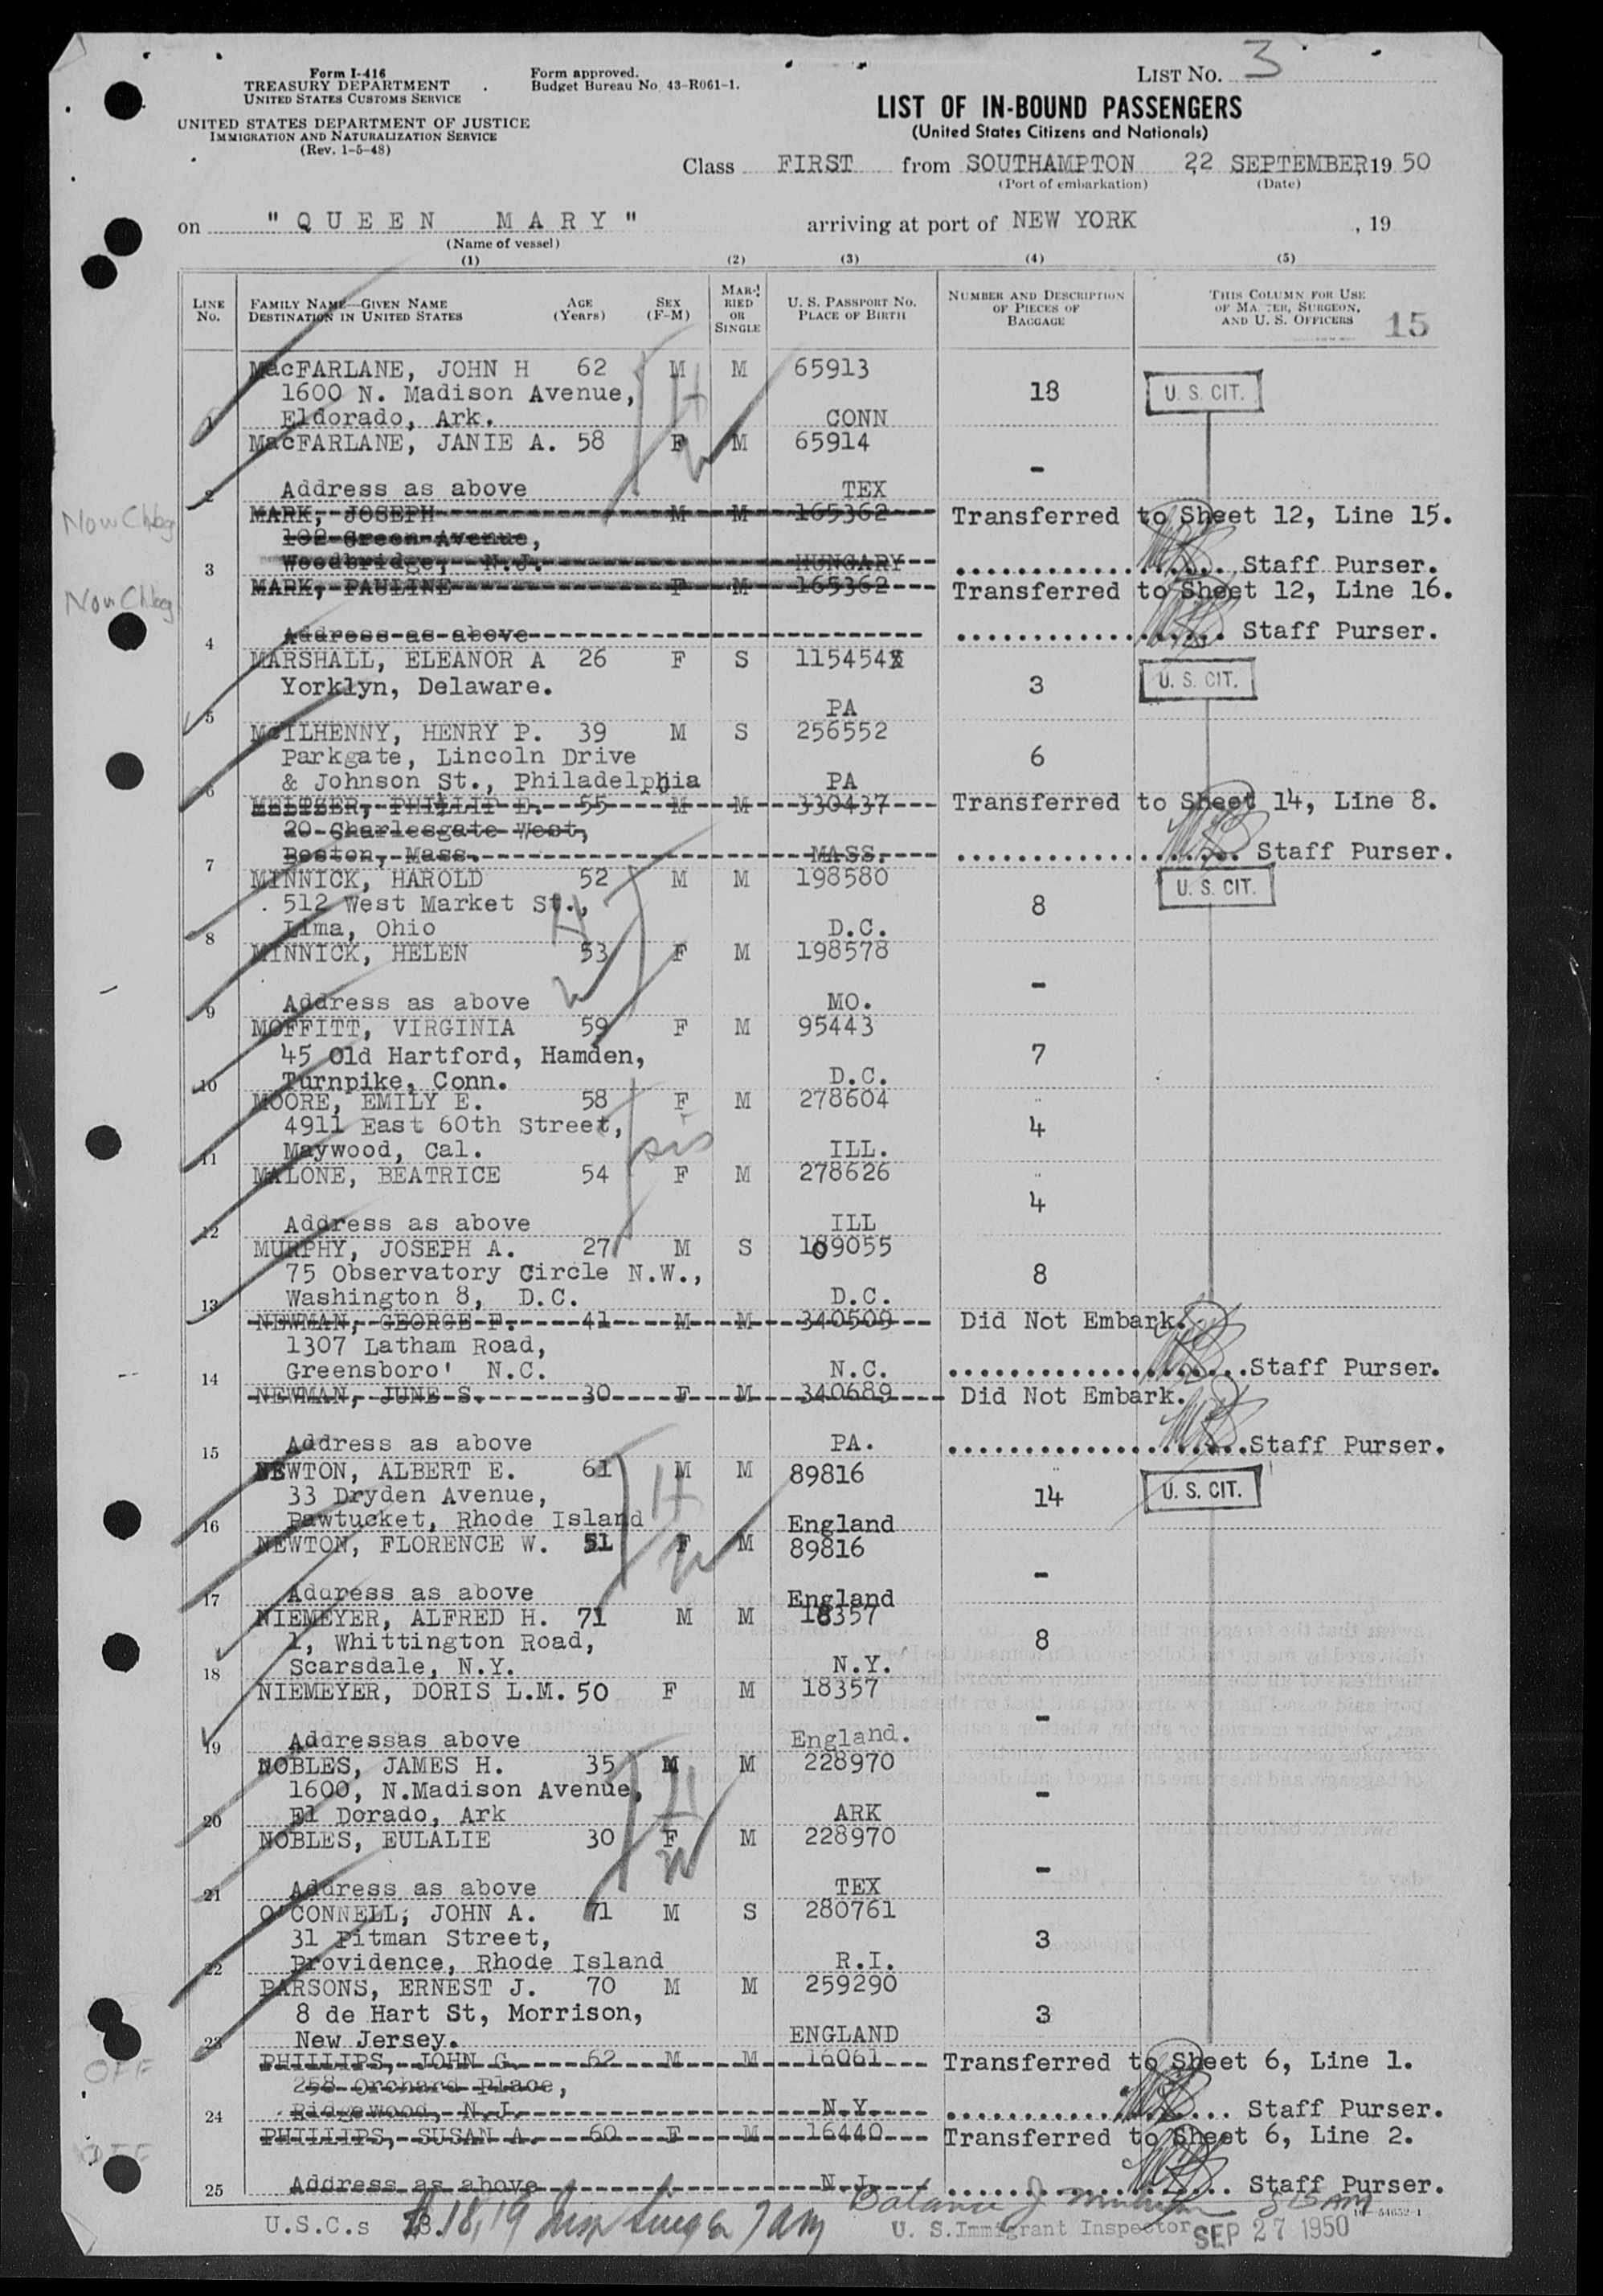 Form I-416
TREASURY DEPARTMENT
UNITED STATES CUSTOMS SERVICE
UNITED STATES DEPARTMENT OF JUSTICE
IMMIGRATION AND NATURALIZATION SERVICE
(Rev. 1-5-48)
Form approved.
Budget Bureau No. 43-R061-1.
LIST NO. 3
LIST OF IN-BOUND PASSENGERS
(United States Citizens and Nationals)
Class FIRST from SOUTHAMPTON 22 SEPTEMBER, 19 50
(Port of embarkation) (Date)
on "QUEEN MARY" arriving at port of NEW YORK , 19
(Name of vessel)
(1) (2) (3) (4) (5)
LINE NO. FAMILY NAME—GIVEN NAME DESTINATION IN UNITED STATES AGE (Years) SEX (F-M) MARRIED OR SINGLE U. S. PASSPORT NO. PLACE OF BIRTH NUMBER AND DESCRIPTION OF PIECES OF BAGGAGE THIS COLUMN FOR USE OF MASTER, SURGEON, AND U. S. OFFICERS 15
MacFARLANE, JOHN H 62 M M 65913
1600 N. Madison Avenue, H 18 U. S. CIT.
1 Eldorado, Ark. CONN
MacFARLANE, JANIE A. 58 F M 65914
W -
2 Address as above TEX
MARK, JOSEPH M M 165362 Transferred to Sheet 12, Line 15.
102 Green Avenue,
3 Woodbridge, N.J. HUNGARY Staff Purser.
MARK, PAULINE F M 165362 Transferred to Sheet 12, Line 16.
4 Address as above Staff Purser.
MARSHALL, ELEANOR A 26 F S 115454
Yorklyn, Delaware. 3 U. S. CIT.
5 PA
McILHENNY, HENRY P. 39 M S 256552
Parkgate, Lincoln Drive 6
6 & Johnson St., Philadelphia PA
MELTZER, PHILLIP E. 55 M M 330437 Transferred to Sheet 14, Line 8.
20 Charlesgate West,
7 Boston, Mass. MASS. Staff Purser.
MINNICK, HAROLD 52 M M 198580 U. S. CIT.
512 West Market St., 8
8 Lima, Ohio H D.C.
MINNICK, HELEN 53 F M 198578
W -
9 Address as above MO.
MOFFITT, VIRGINIA 59 F M 95443
45 Old Hartford, Hamden, 7
10 Turnpike, Conn. D.C.
MOORE, EMILY E. 58 F M 278604
4911 East 60th Street, 4
11 Maywood, Cal. sis ILL.
MALONE, BEATRICE 54 F M 278626
4
12 Address as above ILL
MURPHY, JOSEPH A. 27 M S 109055
75 Observatory Circle N.W., 8
13 Washington 8, D.C. D.C.
NEWMAN, GEORGE F. 41 M M 340509 Did Not Embark.
1307 Latham Road,
14 Greensboro' N.C. N.C. Staff Purser.
NEWMAN, JUNE S. 30 F M 340689 Did Not Embark.
15 Address as above PA. Staff Purser.
NEWTON, ALBERT E. 61 M M 89816
33 Dryden Avenue, H 14 U. S. CIT.
16 Pawtucket, Rhode Island England
NEWTON, FLORENCE W. 51 F M 89816
W -
17 Address as above England
NIEMEYER, ALFRED H. 71 M M 18357
1, Whittington Road, 8
18 Scarsdale, N.Y. N.Y.
NIEMEYER, DORIS L.M. 50 F M 18357
-
19 Addressas above England.
NOBLES, JAMES H. 35 M M 228970
1600, N.Madison Avenue, H -
20 El Dorado, Ark ARK
NOBLES, EULALIE 30 F M 228970
W -
21 Address as above TEX
O'CONNELL, JOHN A. 71 M S 280761
31 Pitman Street, 3
22 Providence, Rhode Island R.I.
PARSONS, ERNEST J. 70 M M 259290
8 de Hart St, Morrison, 3
23 New Jersey. ENGLAND
PHILLIPS, JOHN G. 62 M M 16061 Transferred to Sheet 6, Line 1.
OFF 258 Orchard Place,
24 Ridgewood, N.J. N.Y. Staff Purser.
PHILLIPS, SUSAN A. 60 F M 16440 Transferred to Sheet 6, Line 2.
OFF
25 Address as above N.J. Staff Purser.
Balance
U.S.C.s 18, 19 7 am U. S. Immigrant Inspector
SEP 27 1950
16—54652-1